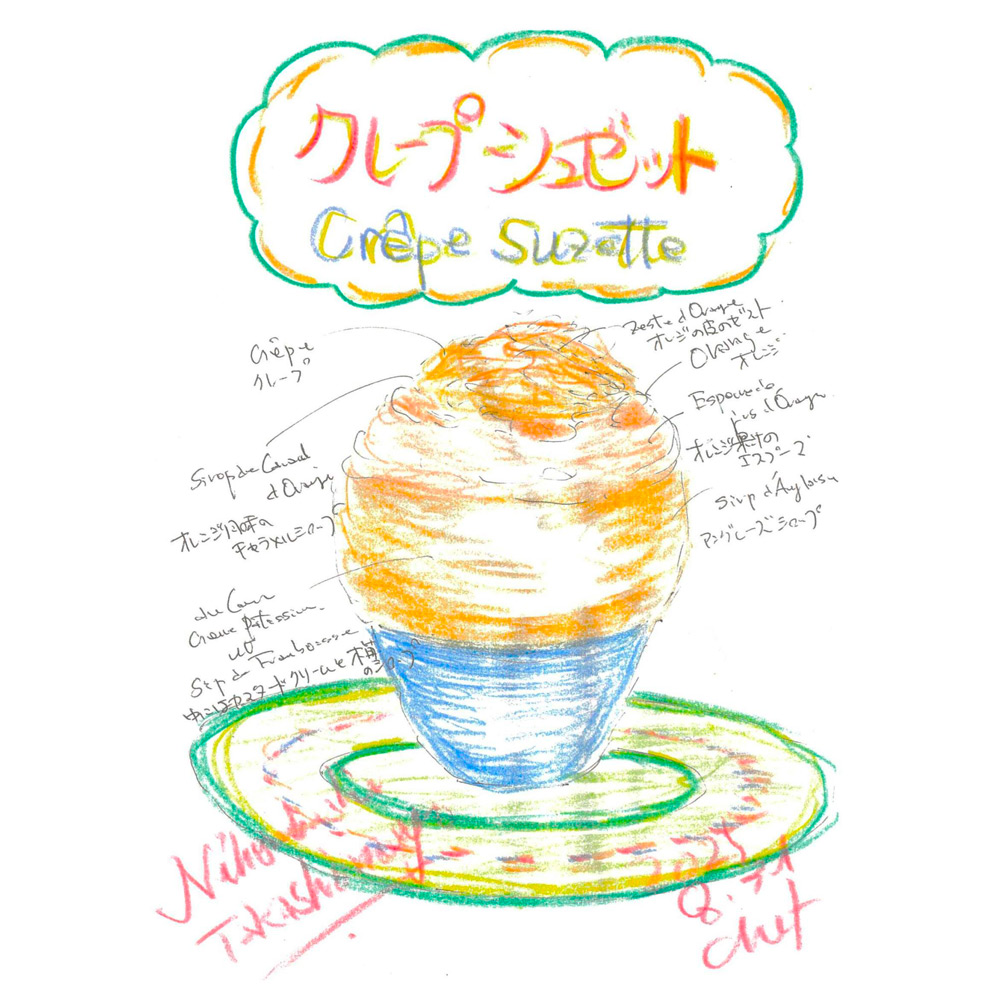 クレープ シュゼット
Crêpe Suzette
Crêpe
クレープ
Zeste d'Orange
オレンジの皮のゼスト
Orange
オレンジ
d'Orange
オレンジ風味の
キャラメルシロップ
jus d'Orange
オレンジ果汁の
エスプーマ
Sirop d'Anglaise
アングレーズシロップ
Crème pâtissière
et
Framboise
中にはカスタードクリームと木苺
のシロップ
Takashimaya
2025
Chef